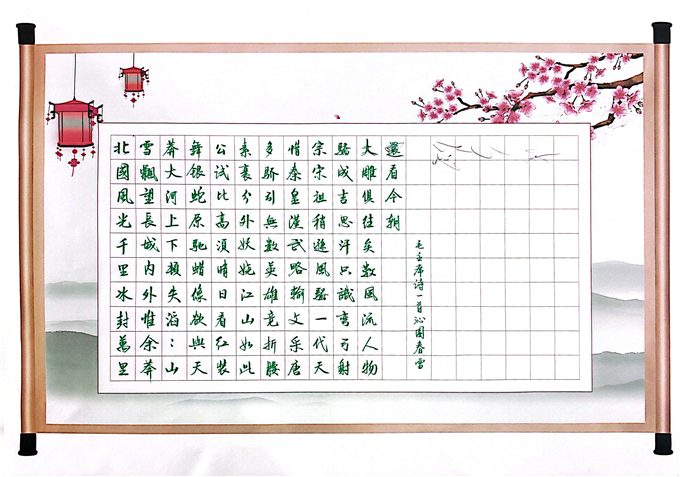 北國風光千里冰封萬里
雪飄望長城内外惟余莽
莽大河上下頓失滔：山
舞銀蛇原馳蜡像欲與天
公試比高須晴日看红裝
素裹分外妖嬈江山如此
多驕引無數英雄竞折腰
惜秦皇漢武略輸文采唐
宗宋祖稍遜風騷一代天
驕成吉思汗只識弯弓射
大雕俱往矣數風流人物
還看今朝
毛主席诗一首沁園春雪